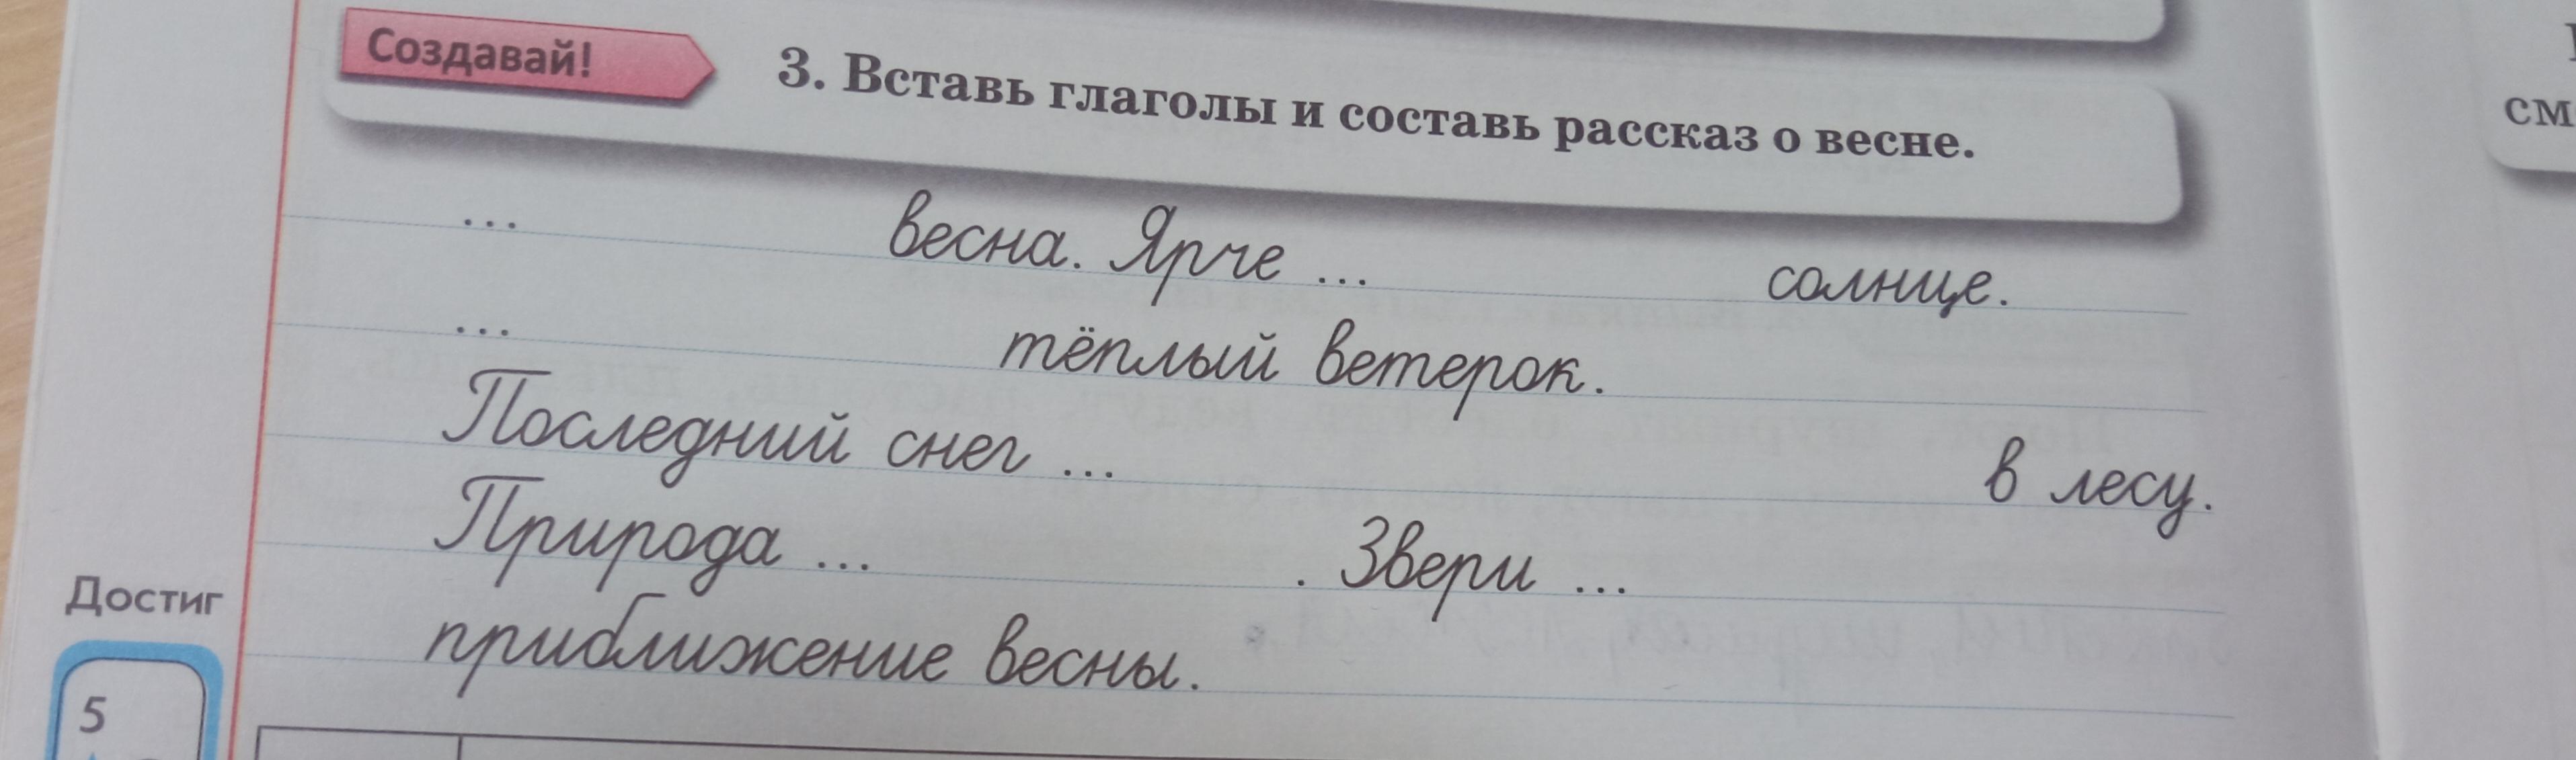 Создавай!
3. Вставь глаголы и составь рассказ о весне.
см
... весна. Ярче ... солнце.
... тёплый ветерок.
Последний снег ... в лесу.
Природа ... . Звери ...
приближение весны.
Достиг
5